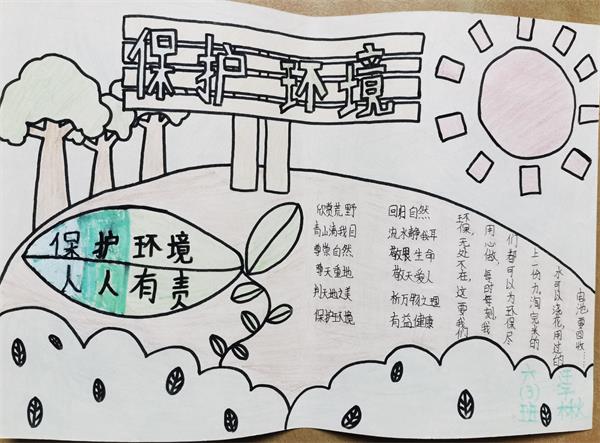 保护环境
保护环境
人人有责
欣赏荒野 回归自然
青山满我目 流水静我耳
尊崇自然 敬畏生命
尊天重地 敬天爱人
判天地之美 析万物之理
保护环境 有益健康
环保,无处不在,这要我们
用心做,每时每刻,我
们都可以为环保尽
上一份力,淘完米的
水可以浇花,用过的
电池要回收……
六(3)班